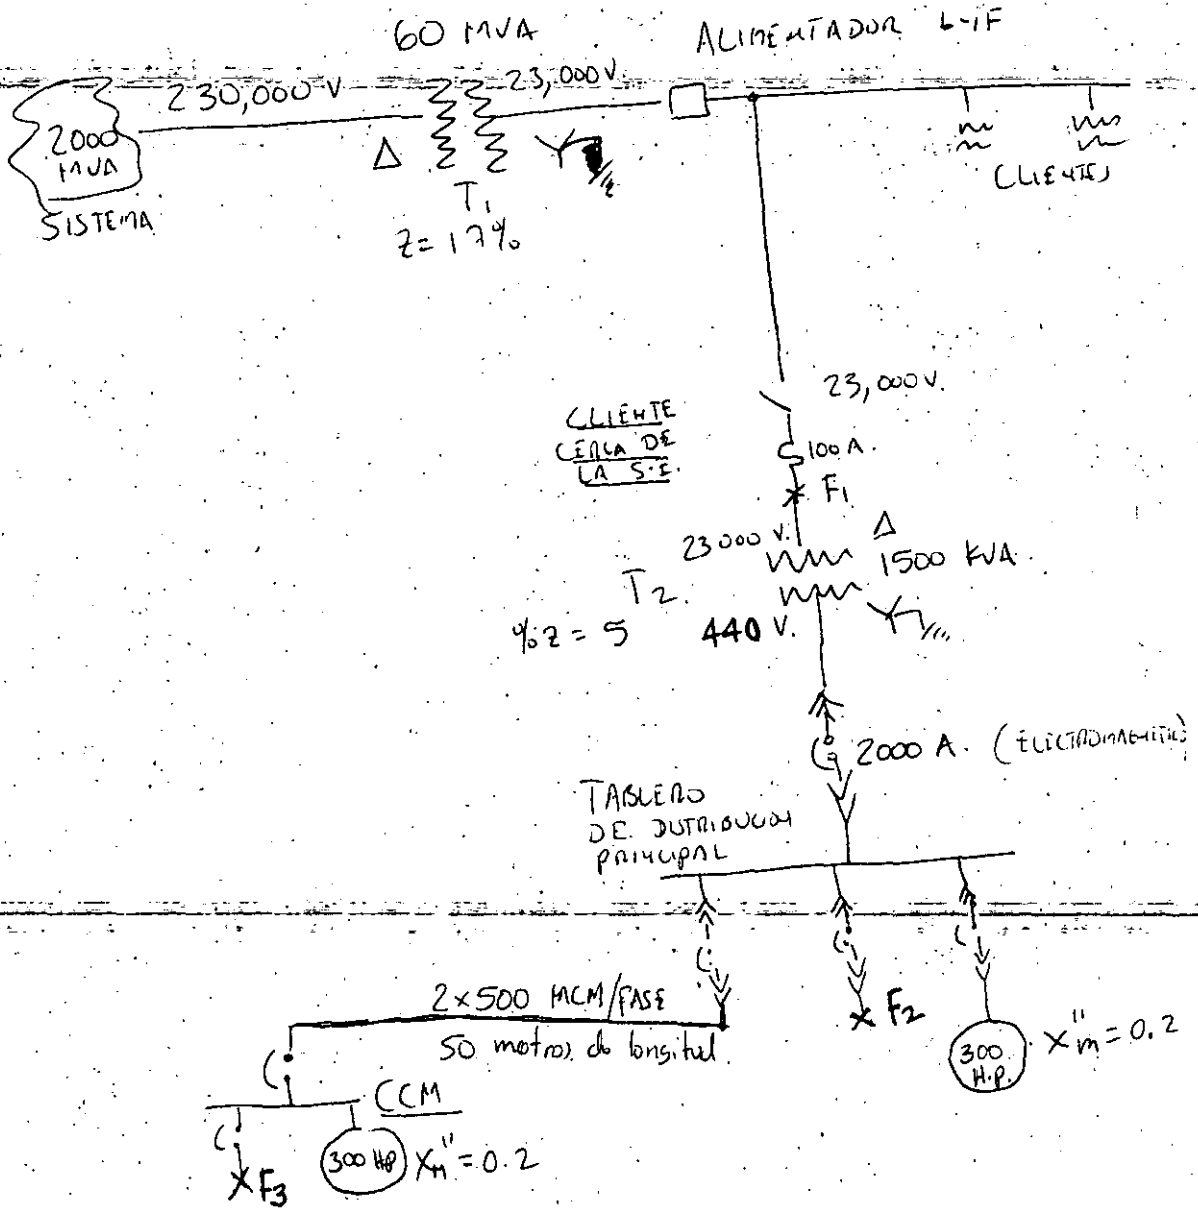 60 MVA
ALIMENTADOR L-1F
230,000 V
23,000V.
2000
MVA
SISTEMA
Δ
T1
Z= 17%
CLIENTES
23,000V.
CLIENTE
CERCA DE
LA S.E.
100 A.
F1
23000 V.
Δ
1500 KVA.
T2.
%Z = 5
440 V.
2000 A. (ELECTROMAGNETICO)
TABLERO
DE DISTRIBUCION
PRINCIPAL
2×500 MCM/FASE
50 metros de longitud.
F2
300
H.P.
X"m = 0.2
CCM
300 HP
X"m = 0.2
F3